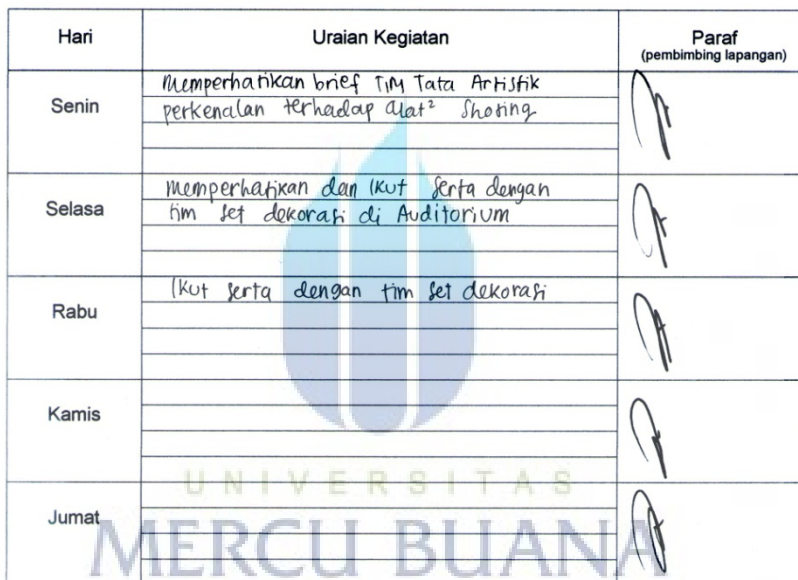 Hari Uraian Kegiatan Paraf
(pembimbing lapangan)
Senin
memperhatikan brief TIM Tata Artistik
perkenalan terhadap alat² Shoting
Selasa
memperhatikan dan ikut serta dengan
tim set dekorasi di Auditorium
Rabu
ikut serta dengan tim set dekorasi
Kamis
Jumat
UNIVERSITAS
MERCU BUANA